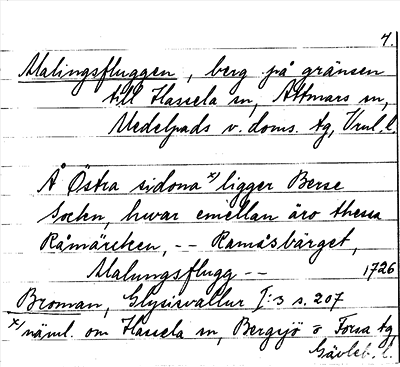 4.
Malingsfluggen, berg på gränsen
till Hassela sn, Attmars sn,
Medelpads v. doms. tg, Vrnl. l.
Å Östra sidona x) ligger Berse
Sockn, hwar emellan äro thessa
Råmärcken, -- Ramåsbärget,
Malungsflugg -- 1726
Broman, Glysisvallur I:3 s. 207
x) näml. om Hassela sn, Bergsjö o Forsa tg
Gävleb. l.